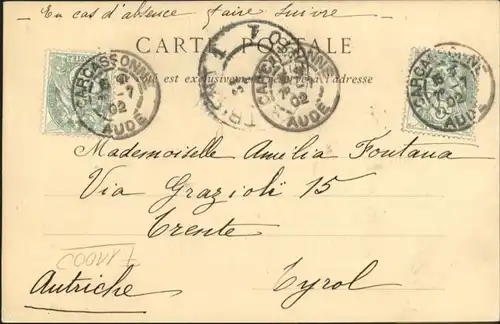 En cas d'absence faire suivre
CARTE POSTALE
côté est exclusivement réservé à l'adresse
CARCASSONNE
02
AUDE
CARCASSONNE
02
AUDE
CARCASSONNE
02
AUDE
Mademoiselle Amélia Fontana
Via Grazioli 15
Trente
Autriche Tyrol